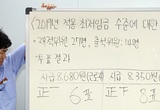 (2019년 적용 최저임금 수준에 대한
- 재적위원 27명, 출석위원: 14명
- 투표결과
시급 8,680원 시급 8,350원
正 正
6표 8표